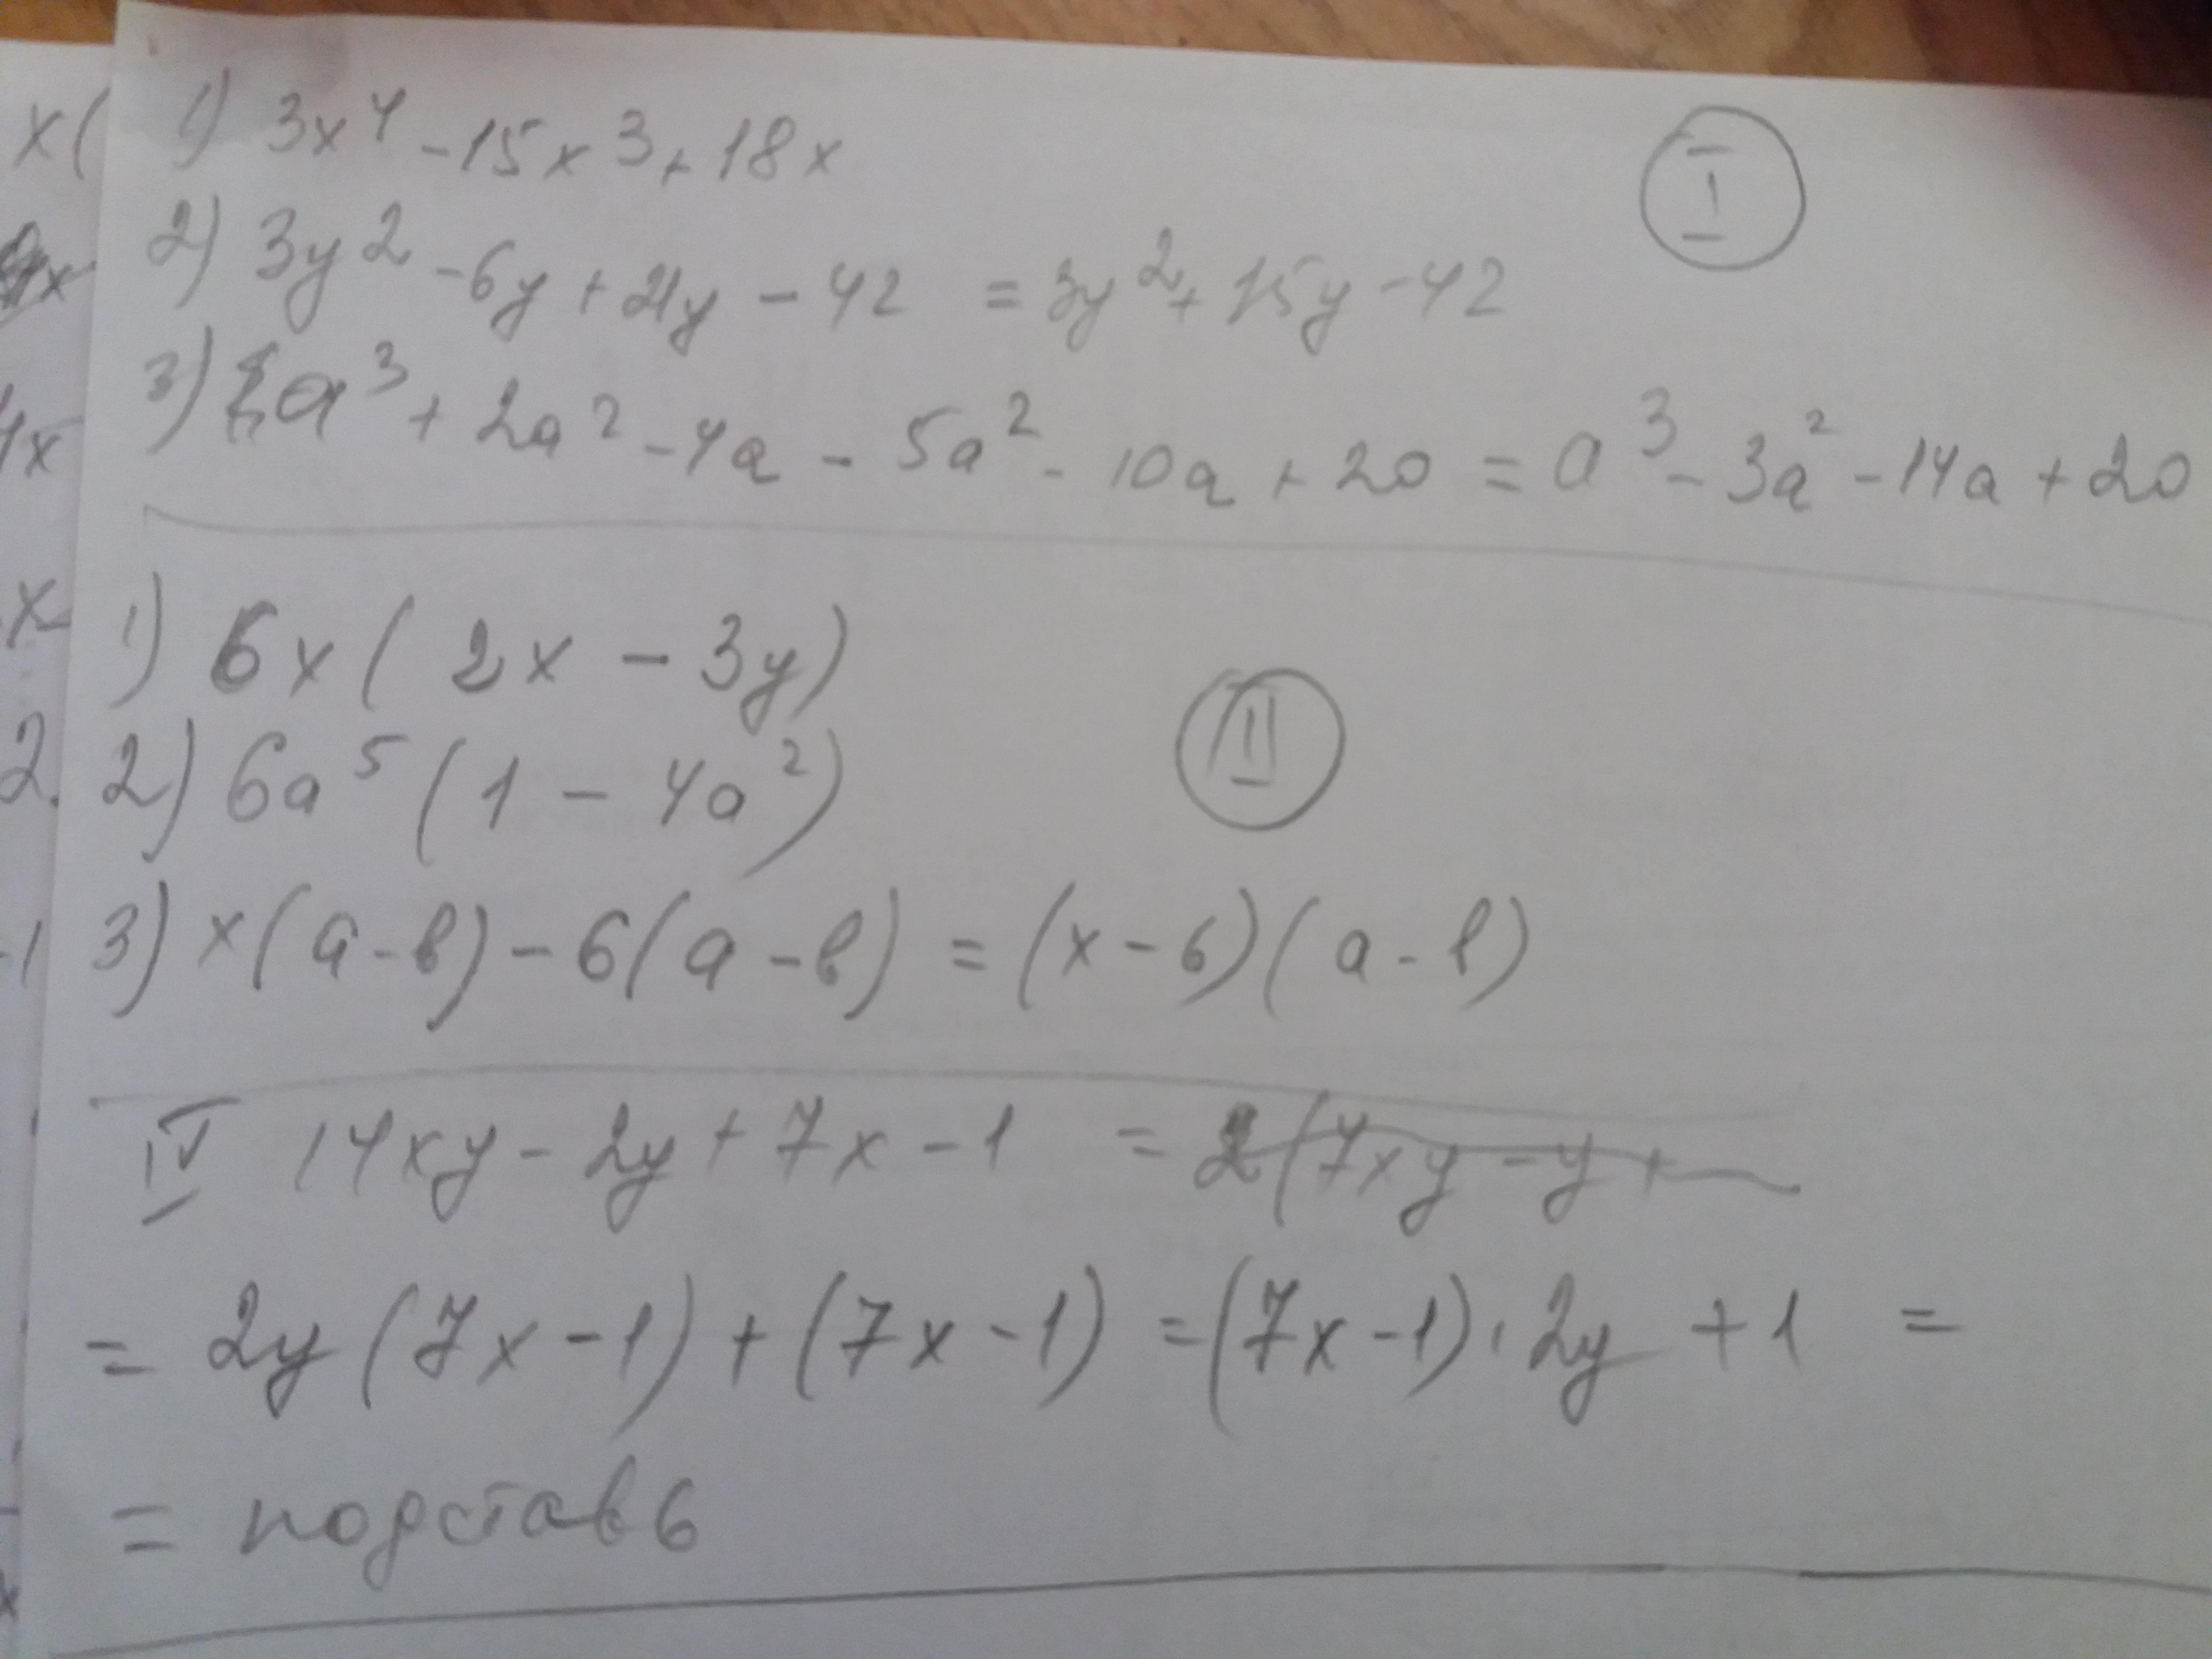 1) 3x⁴ - 15x³ + 18x
I
2) 3y² - 6y + 21y - 42 = 3y² + 15y - 42
3) a³ + 2a² - 4a - 5a² - 10a + 20 = a³ - 3a² - 14a + 20
1) 6x(2x - 3y)
II
2) 6a⁵(1 - 4a²)
3) x(a-в) - 6(a-в) = (x-6)(a-в)
IV 14xy - 2y + 7x - 1 = 2(7xy - y +
= 2y(7x-1) + (7x-1) = (7x-1)·2y + 1 =
= подставь